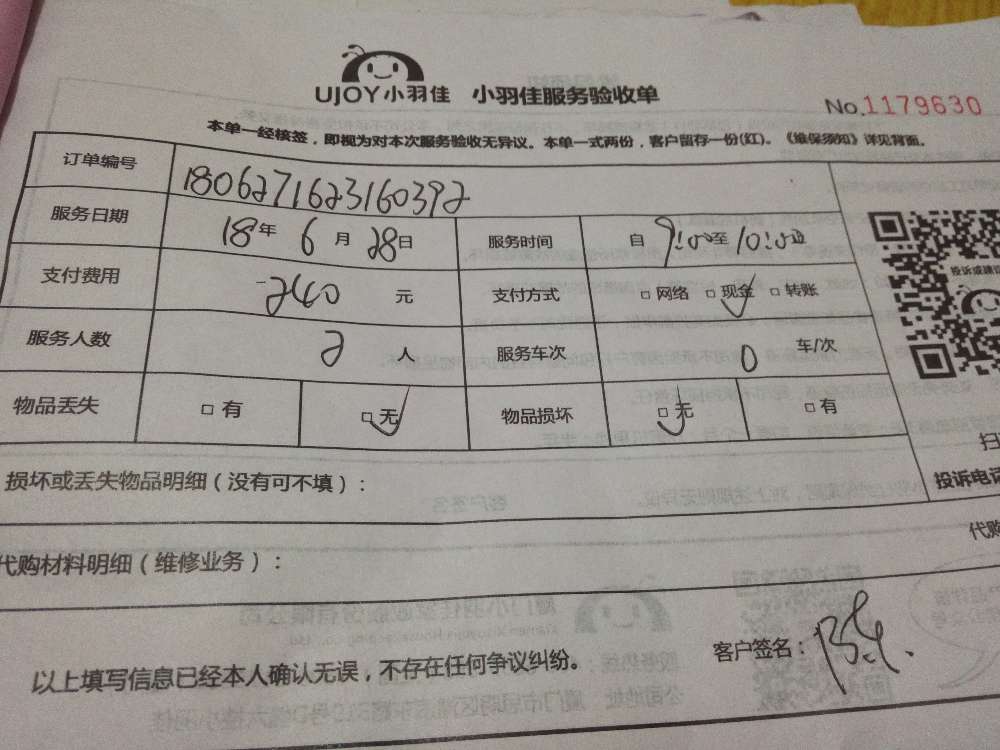 UJOY小羽佳 小羽佳服务验收单
No.1179630
本单一经核签，即视为对本次服务验收无异议。本单一式两份，客户留存一份(红)。《维保须知》详见背面。
订单编号 1806271623160392
服务日期 18年 6月 28日 服务时间 自 9:00至 10:00
支付费用 240 元 支付方式 □网络 □现金 □转账
服务人数 2 人 服务车次 0 车/次
物品丢失 □有 □无 物品损坏 □无 □有
投诉或建议
损坏或丢失物品明细（没有可不填）：
扫
投诉电话
代购材料明细（维修业务）：
代购
以上填写信息已经本人确认无误，不存在任何争议纠纷。 客户签名：